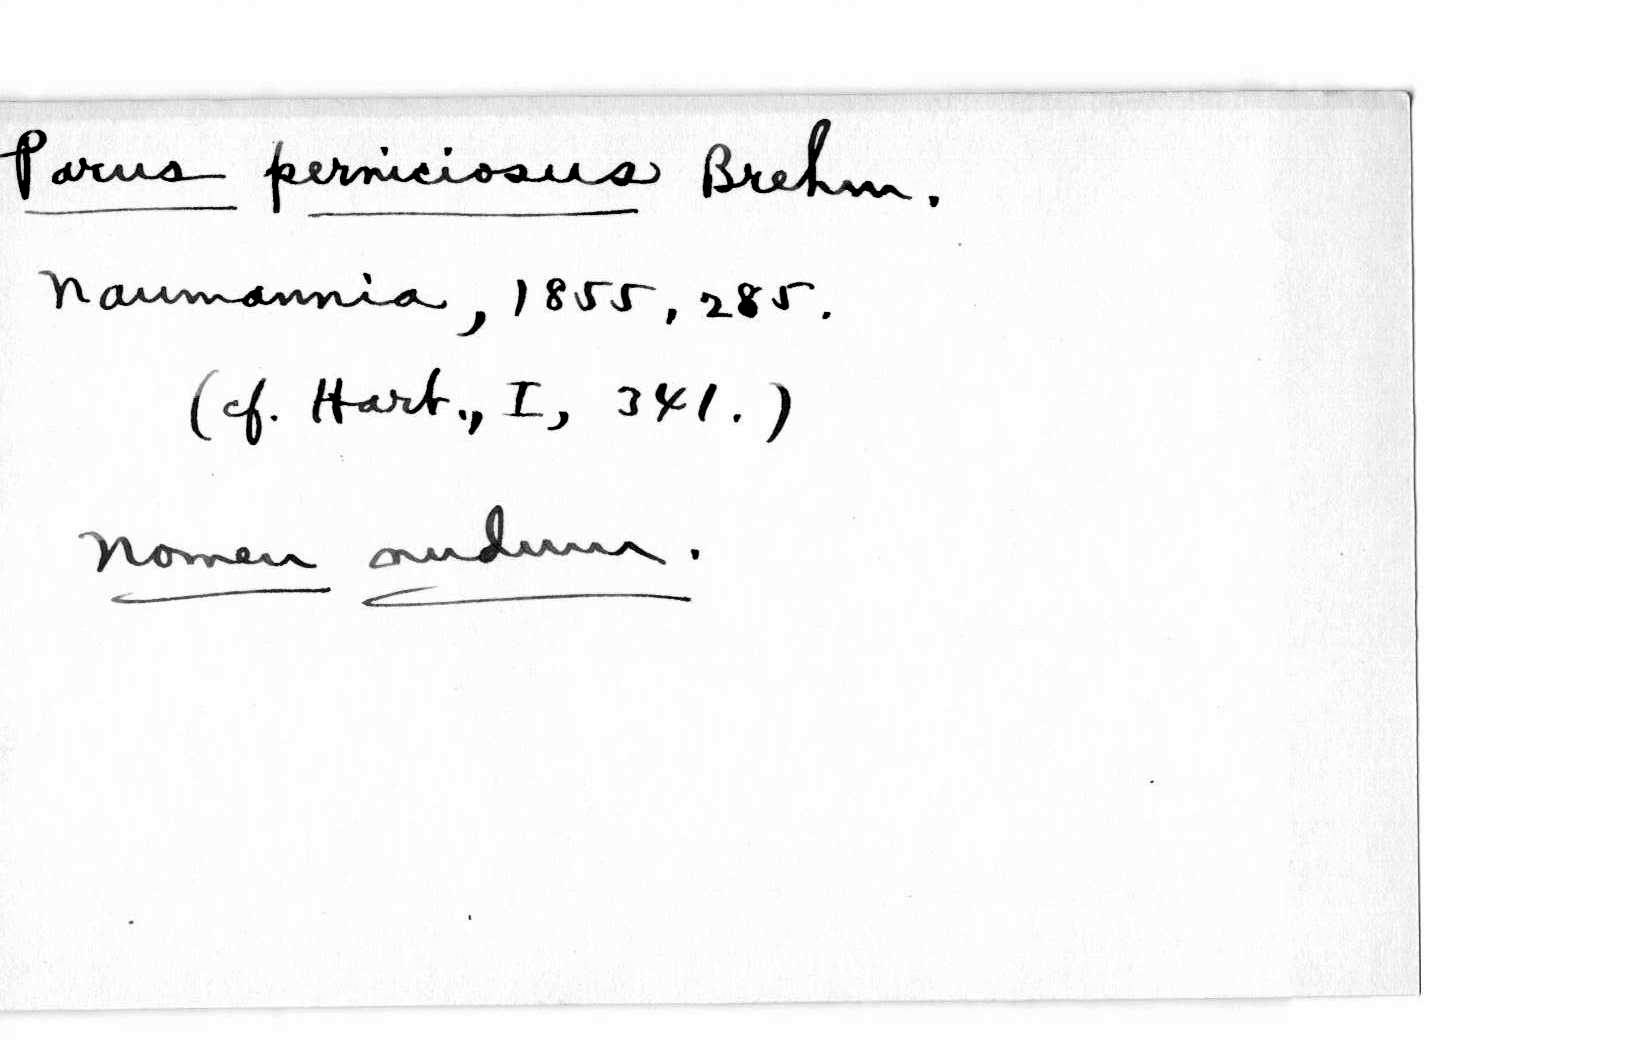 Parus perniciosus Brehm.
Naumannia, 1855, 285.
(cf. Hart., I, 341.)
Nomen nudum.